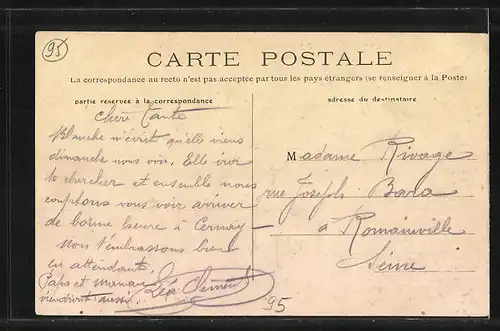 95
CARTE POSTALE
La correspondance au recto n'est pas acceptée par tous les pays étrangers (se renseigner à la Poste)
partie réservée à la correspondance
adresse du destinataire
Chère Tante
Blanche m'écrit qu'elle viens
dimanche nous voir. Elle
te chercher et ensemble nous
comptons vous voir arriver
de bonne heure à Cernay
t'embrassons bien
en attendant.
Papa et maman
viendront aussi.
Léa Clement
Madame Rivage
rue Joseph Bara
à Romainville
Seine
95